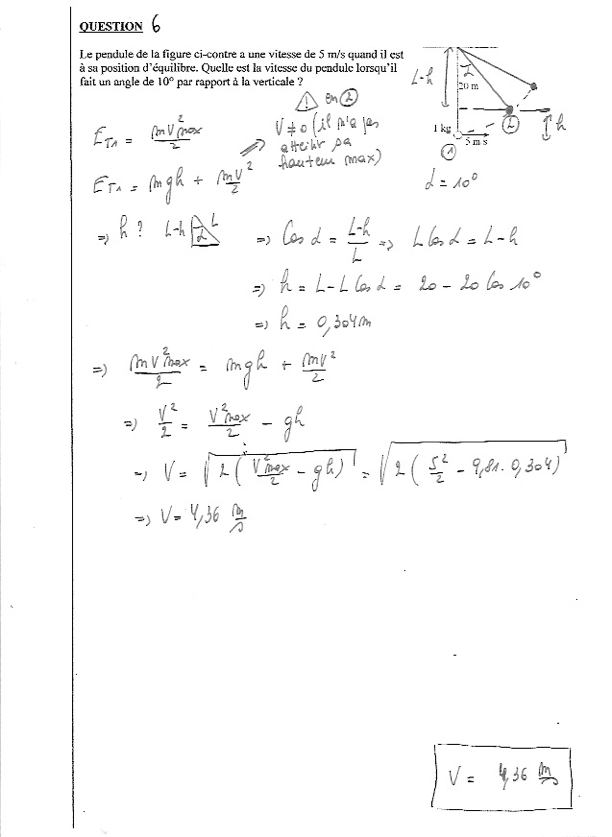 QUESTION 6
Le pendule de la figure ci-contre a une vitesse de 5 m/s quand il est
à sa position d'équilibre. Quelle est la vitesse du pendule lorsqu'il
fait un angle de 10° par rapport à la verticale ?
L-h
α
20 m
1 kg
5 m/s
①
②
h
α = 10°
⚠ en ②
V ≠ 0 (il n'a pas
atteint sa
hauteur max)
E_T1 = mV²max/2
E_T1 = mgh + mV²/2
=> h ? L-h α L => Cos α = (L-h)/L => L Cos α = L-h
=> h = L - L Cos α = 20 - 20 Cos 10°
=> h = 0,304 m
=> mV²max/2 = mgh + mV²/2
=> V²/2 = V²max/2 - gh
=> V = √(2 (V²max/2 - gh)) = √(2 (5²/2 - 9,81 . 0,304))
=> V = 4,36 m/s
V = 4,36 m/s